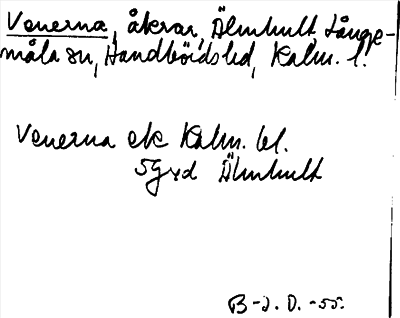 Venerna, åkrar, Älmhult, Långe-
måla sn, Handbörds hd, Kalm. l.
Venerna ek Kalm. bl.
5g xd Älmhult
B-J. D. -55.